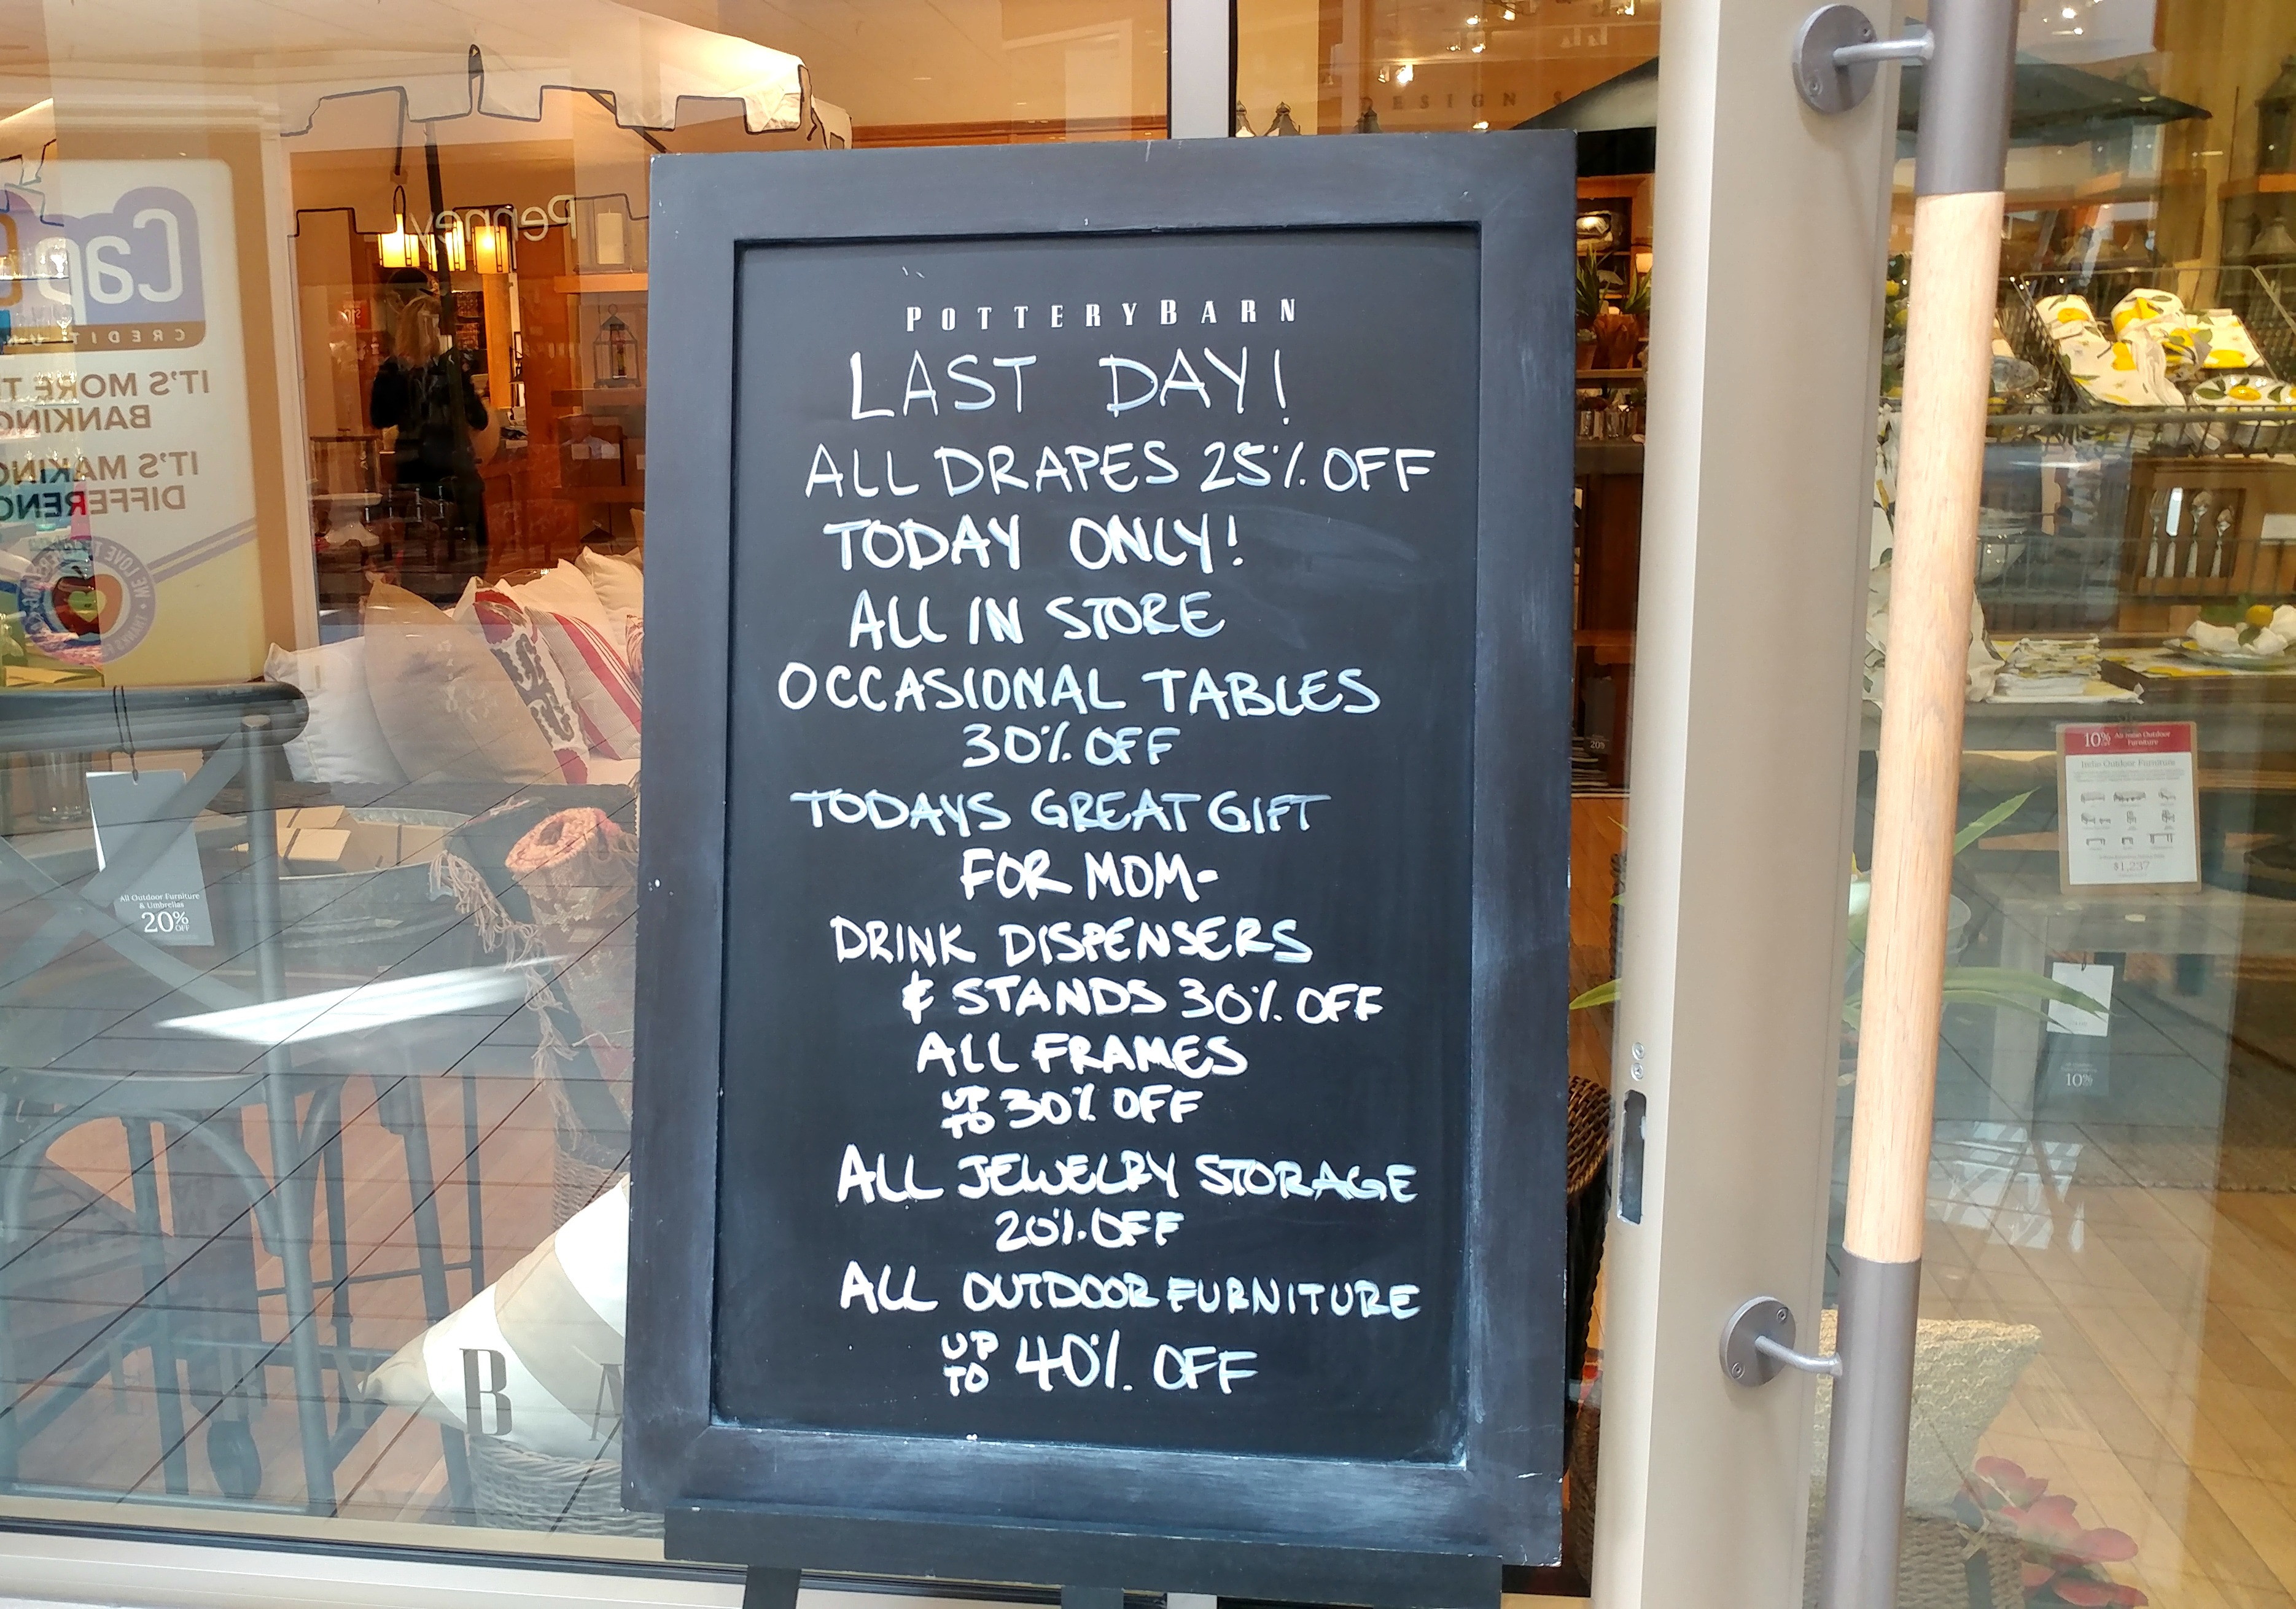 POTTERY BARN
LAST DAY!
ALL DRAPES 25% OFF
TODAY ONLY!
ALL IN STORE
OCCASIONAL TABLES
30% OFF
TODAYS GREAT GIFT
FOR MOM-
DRINK DISPENSERS
& STANDS 30% OFF
ALL FRAMES
UP TO 30% OFF
ALL JEWELRY STORAGE
20% OFF
ALL OUTDOOR FURNITURE
UP TO 40% OFF
Cap
CREDIT
IT'S MORE
BANKING
IT'S MAKING
DIFFERENC
WE LOVE
Penney
DESIGN S
All Outdoor Furniture
& Umbrellas
20% OFF
B A
10% OFF All Indio Outdoor
Furniture
Indio Outdoor Furniture
$1,237
10%
20%